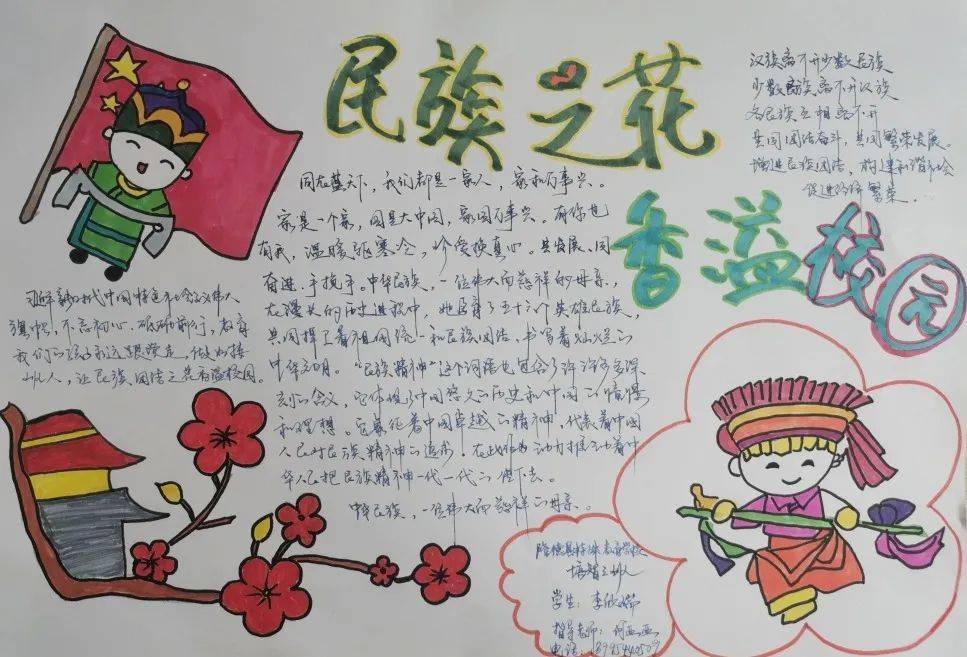 民族之花
香溢校园
汉族离不开少数民族
少数民族离不开汉族
各民族互相离不开
共同团结奋斗，共同繁荣发展。
增进民族团结，构建和谐社会
促进经济繁荣。
同在蓝天下，我们都是一家人，家和万事兴。
家是一个家，国是大中国，家国万事兴。有你也
有我，温暖驱寒冷，分爱换真心。共发展、同
奋进、手挽手。中华民族，一位伟大而慈祥的母亲，
在漫长的历史进程中，她哺育了五十六个英雄民族，
共同捍卫着祖国统一和民族团结，书写着灿烂的
中华岁月。“民族精神”这个词语也包含了许许多多深
刻的含义，它体现了中国悠久的历史和中国的憧憬
和理想。它象征着中国卓越的精神，代表着中国
人民对民族精神的追求，在
动力推动着中
华人民把民族精神一代一代的传下去。
中华民族，一位伟大而慈祥的母亲。
习近平新时代中国特色社会主义伟大
旗帜，不忘初心，砥砺前行，教育
我们的孩子永远跟党走，做好接
班人，让民族团结之花香溢校园。
隆德县特殊教育学校
培智三班
学生：李欣
指导老师：何画画
电话：1